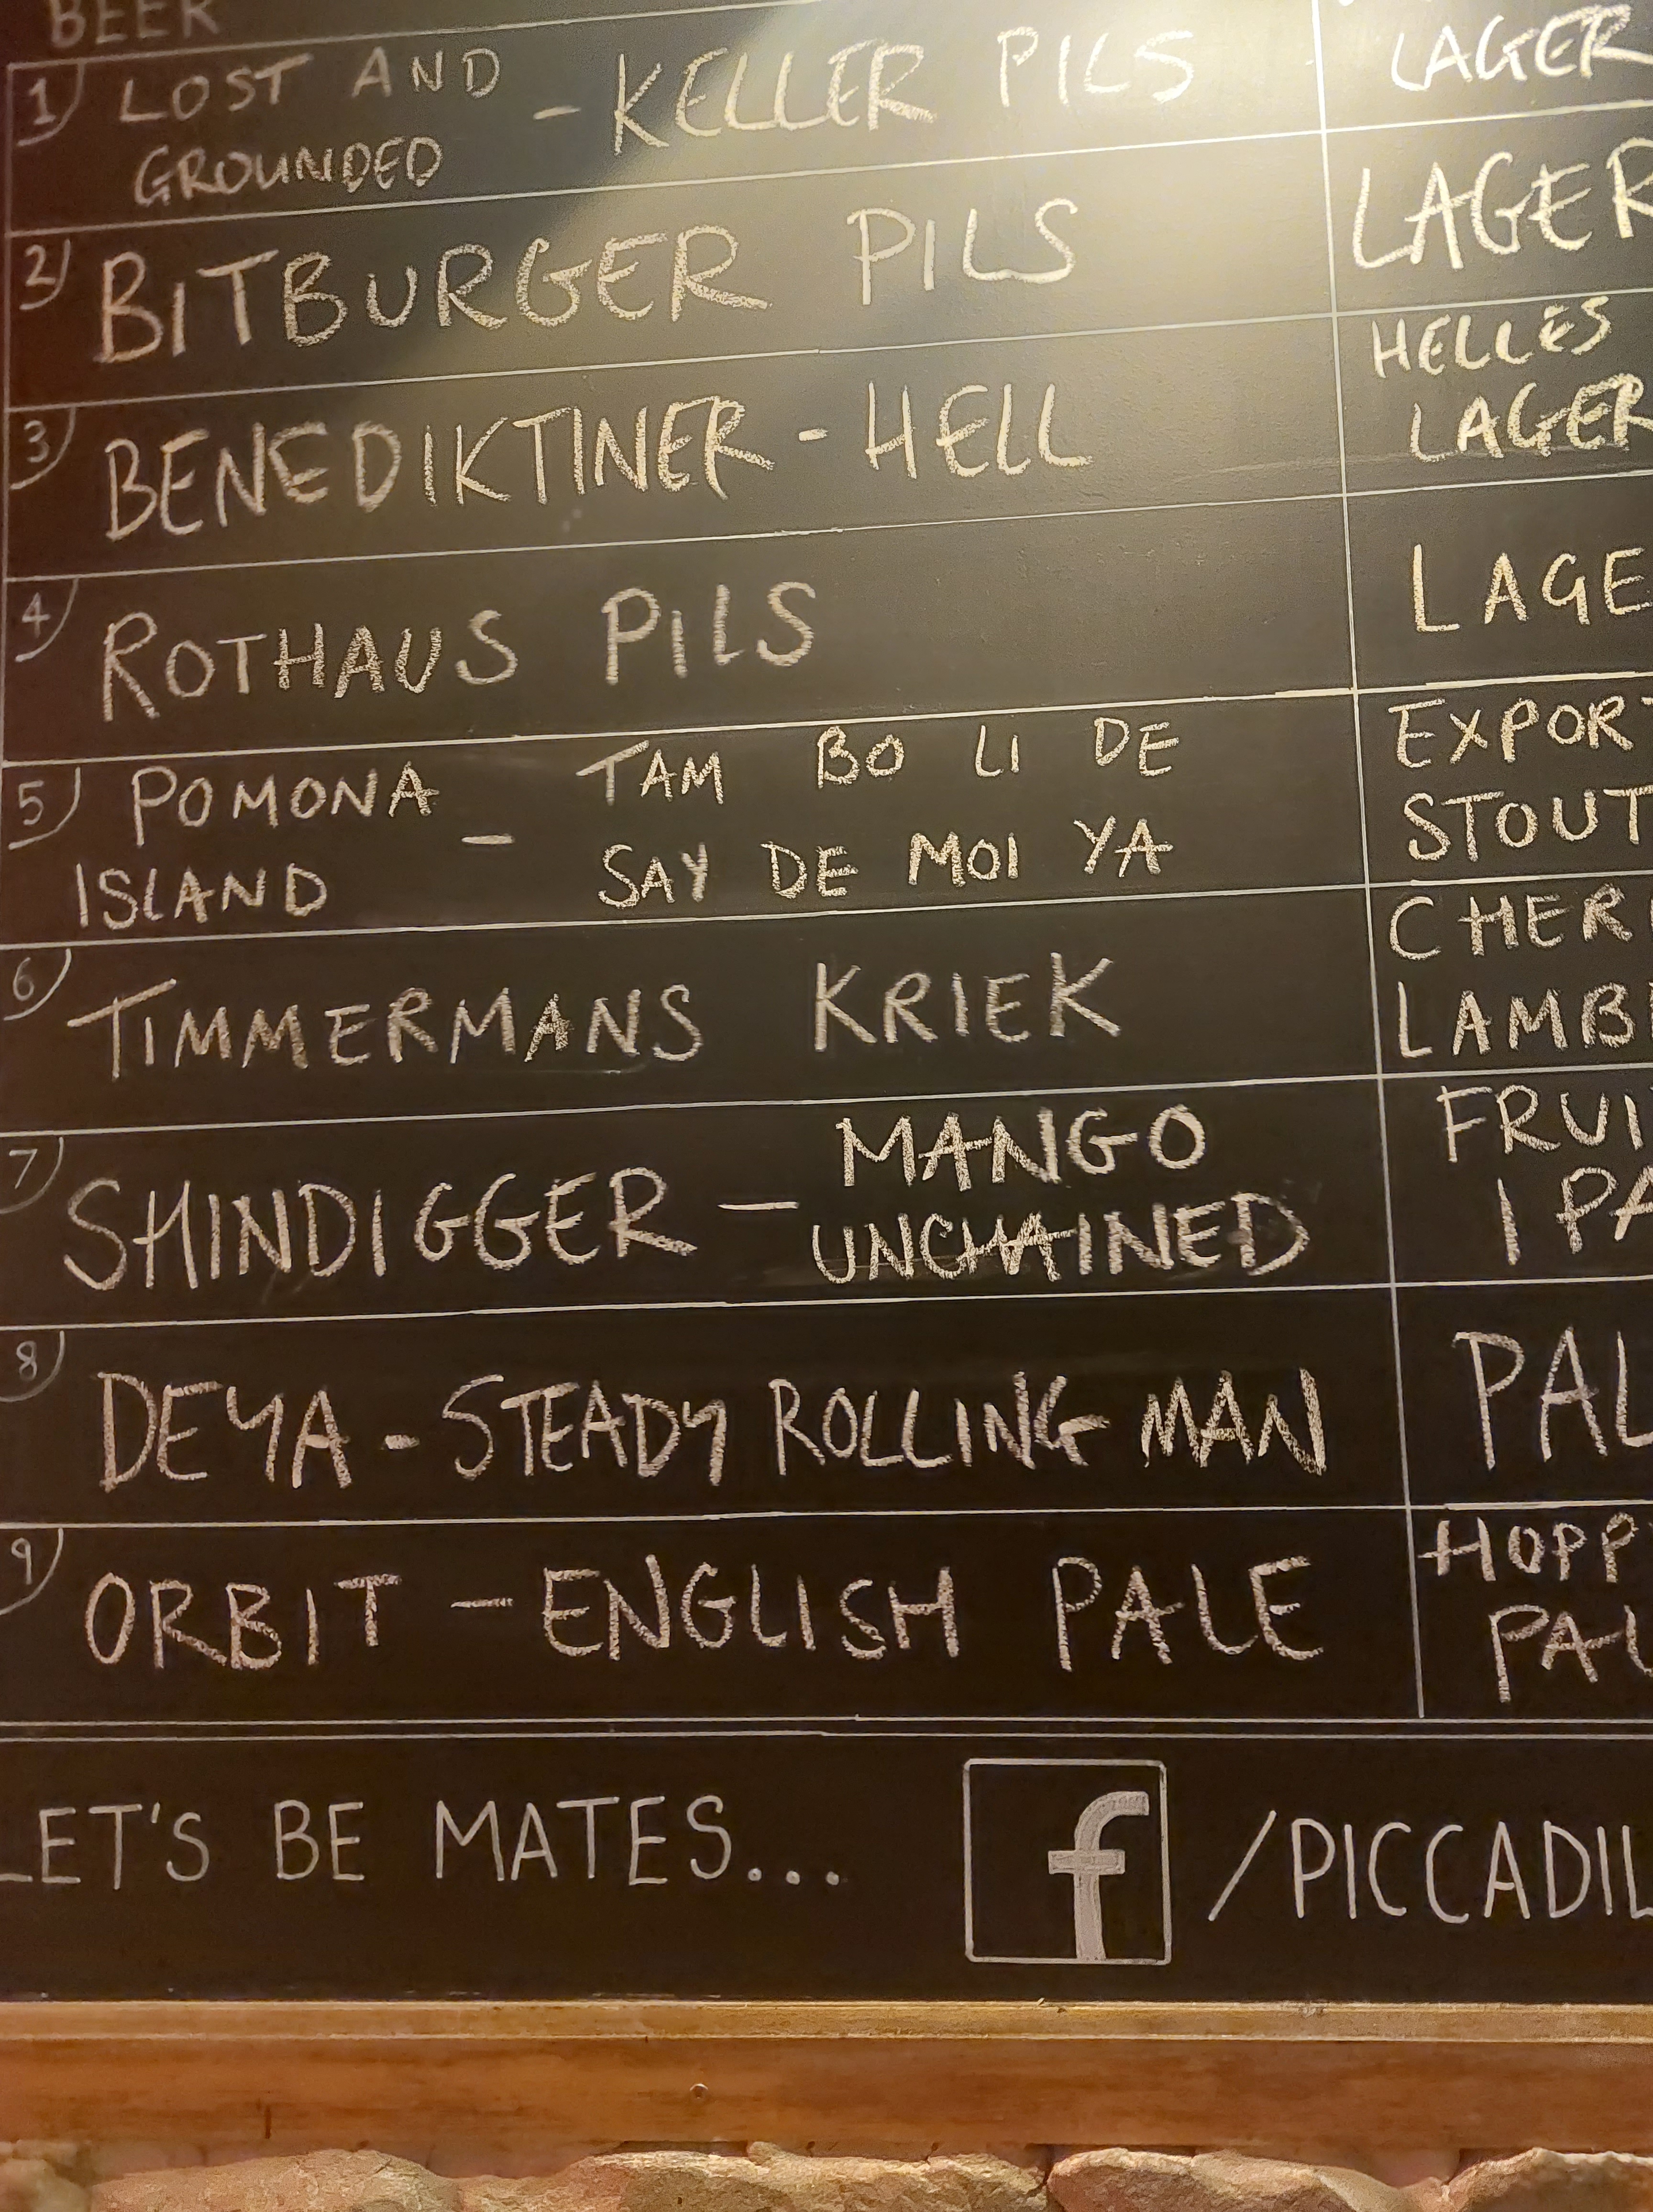 BEER
1 LOST AND GROUNDED - KELLER PILS LAGER
2 BITBURGER PILS LAGER
3 BENEDIKTINER - HELL HELLES LAGER
4 ROTHAUS PILS LAGE
5 POMONA ISLAND - TAM BO LI DE SAY DE MOI YA EXPORT STOUT
6 TIMMERMANS KRIEK CHER LAMB
7 SHINDIGGER - MANGO UNCHAINED FRUI IPA
8 DEYA - STEADY ROLLING MAN PAL
9 ORBIT - ENGLISH PALE HOPP PAL
LET'S BE MATES... f /PICCADIL